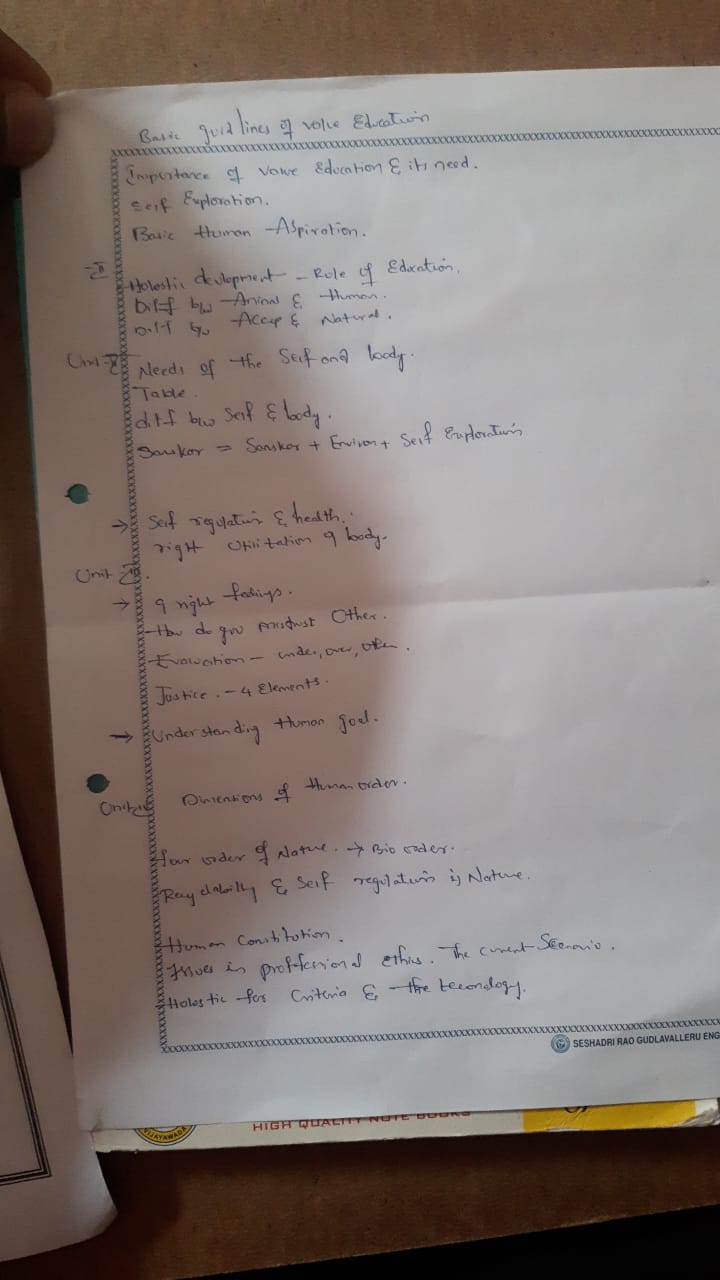 Basic guid lines of value Education
Importance of value Education & its need.
Self Exploration.
Basic Human Aspiration.
II
Holostic devlopment - Role of Education.
Diff b/w Animal & Human.
Diff b/w Accep & Natural.
Unit-
Needs of the Self and body.
Table.
diff b/w Self & body.
Sanskar = Sanskar + Environ + Self Exploration
→ Self regulation & health.
right Utilization of body.
Unit
→ 9 right feelings.
How do you mistrust Other.
Evaluation - under, over, other.
Justice. - 4 Elements.
→ Understanding Human goal.
Unit
Dimentions of Human order.
four order of Nature. → Bio order.
& Self regulation is Nature.
Human Constitution.
Issues in proffesional ethics. The current Scenario.
Holostic for Criteria & the tecnology.
SESHADRI RAO GUDLAVALLERU ENG
VIJAYAWADA
HIGH QUALITY NOTE BOOKS